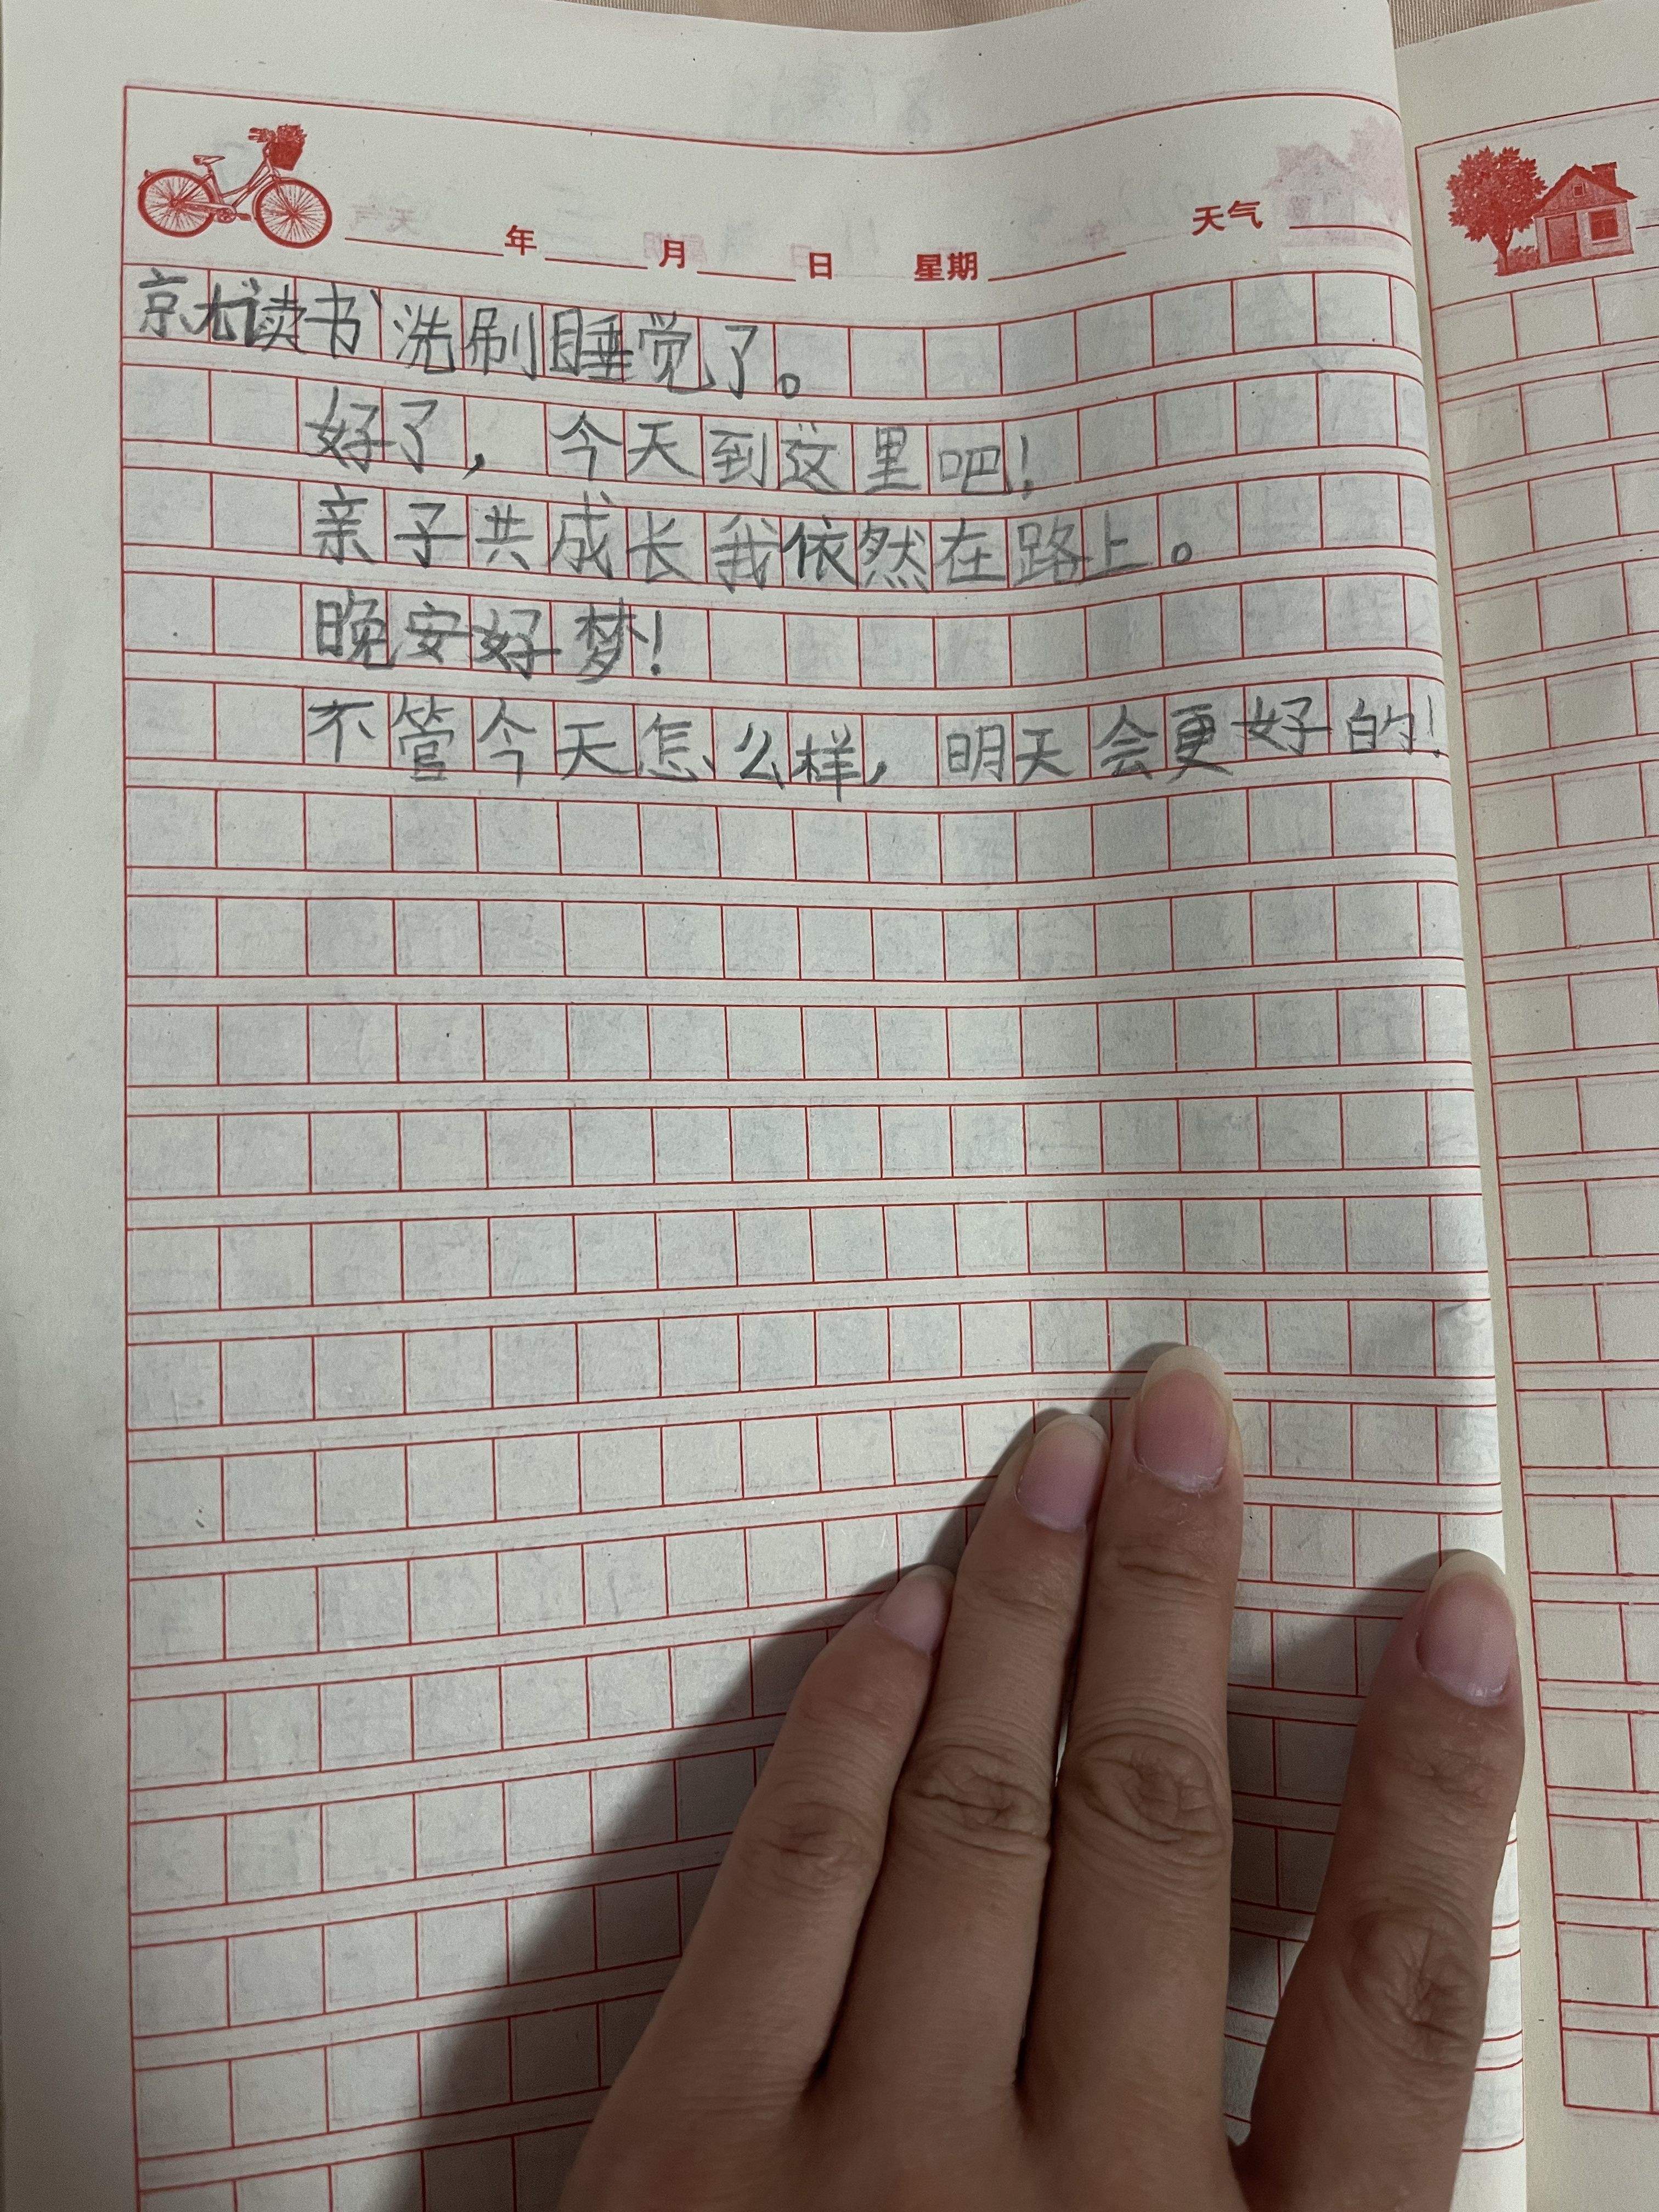 年 月 日 星期 天气
京尤读书、洗刷睡觉了。
好了，今天到这里吧！
亲子共成长我依然在路上。
晚安好梦！
不管今天怎么样，明天会更好的！